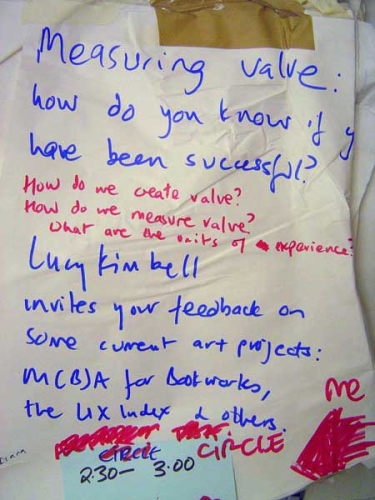 Measuring value:
how do you know if y
have been successful?
How do we create value?
How do we measure value?
What are the units of experience?
Lucy Kimbell
invites your feedback on
some current art projects:
M(B)A for Bookworks,
the LIX Index & others.
me
CIRCLE
CIRCLE
2.30- 3.00